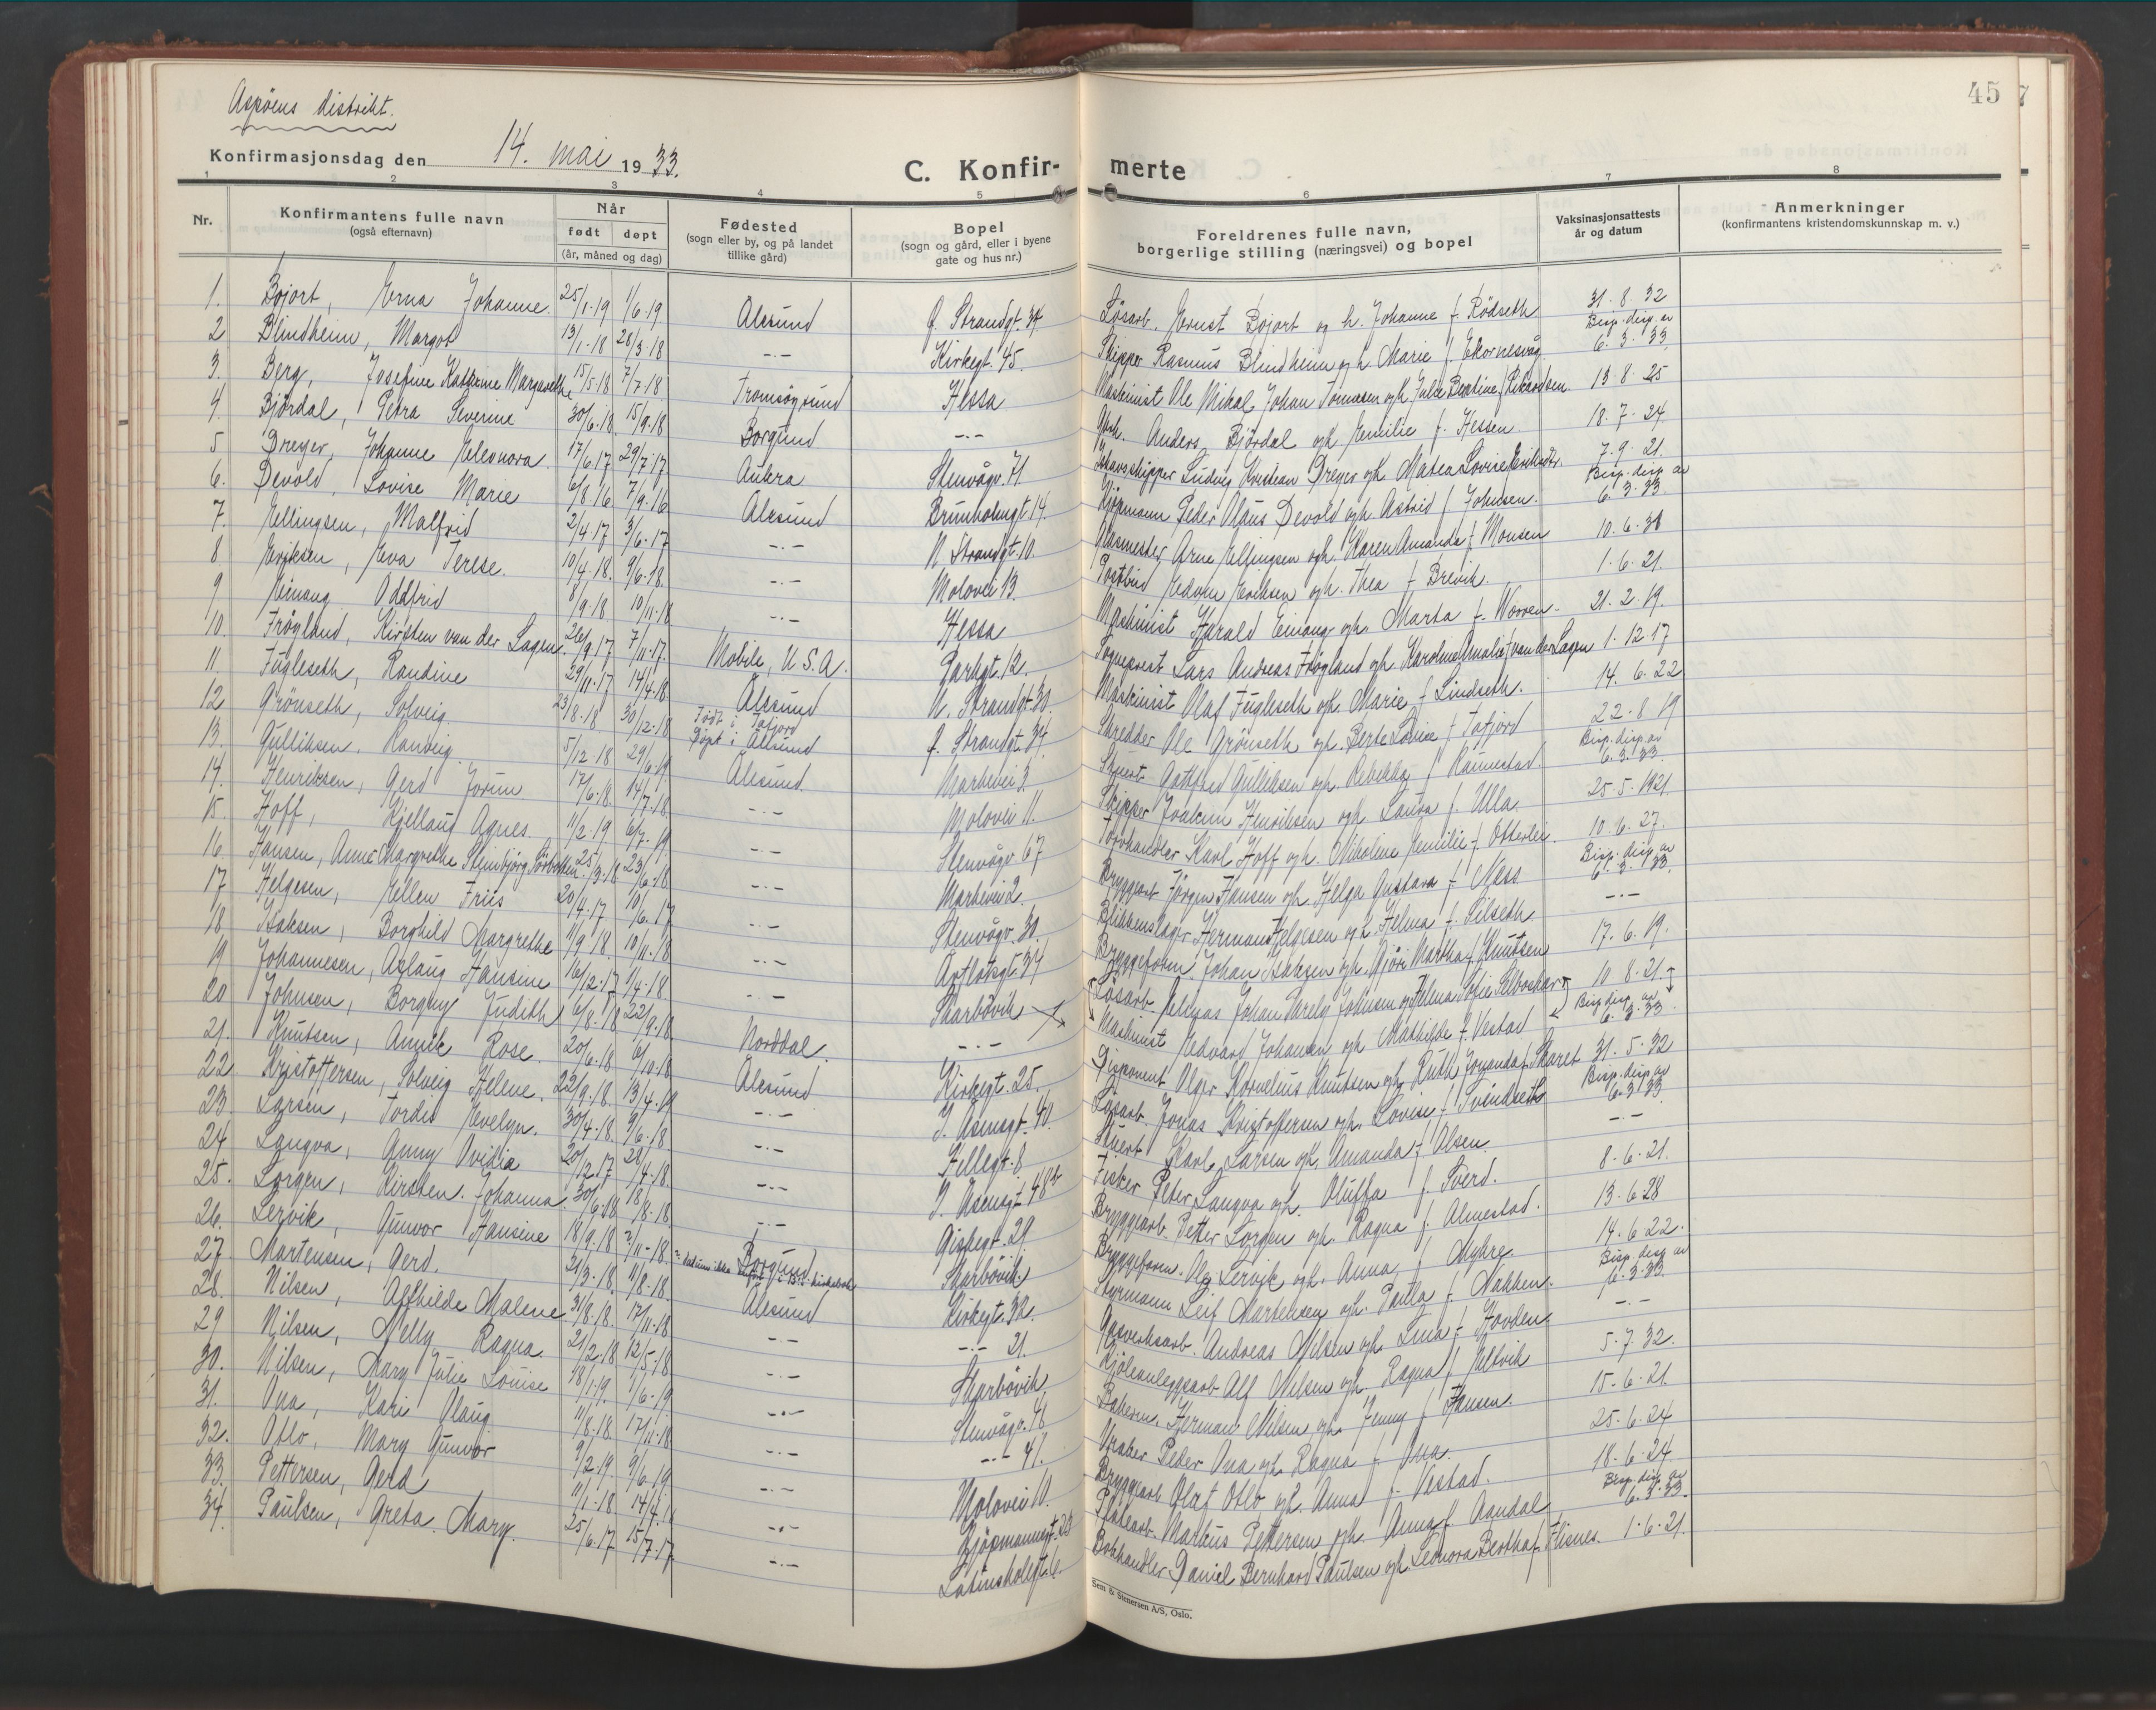 Aspöens distrikt.
45
Konfirmasjonsdag den 14. mai 1933.
C. Konfir-merte
1 2 3 4 5 6 7 8
Nr. Konfirmantens fulle navn (også efternavn) Når født døpt (år, måned og dag) Fødested (sogn eller by, og på landet tillike gård) Bopel (sogn og gård, eller i byene gate og hus nr.) Foreldrenes fulle navn, borgerlige stilling (næringsvei) og bopel Vaksinasjonsattests år og datum Anmerkninger (konfirmantens kristendomskunnskap m. v.)
1. Bojort, Erna Johanne 25/1-19 1/6-19 Alesund J. Strandgt. 34 Lösarb. Ernst Bojort og h. Johanne f. Rödseth 31-8-32
2 Blindheim, Margot 13/1-18 28/3-18 -"- Kirkegt. 45. Skipper Rasmus Blindheim og h. Marie f. Ekornesvåg Bisp. disp. av 6.3.33.
3. Berg, Josefine Kathrine Margarethe 15/5-18 7/7-18 Tromsöysund Hessa Maskinist Ole Mikal Johan og h. Julie 13-8-25
4 Bjørdal, Petra Severine 30/6-18 15/9-18 Borgund -"- Anders Bjørdal og h. Emilie f. Hessen 18-7-24
5 Dreyer, Johanne Eleonora 17/6-17 29/7-17 Aukra Stenvågv. 71. Ludvig Kristian Dreyer og h. Matea Lovise 7-9-21.
6. Devold, Lovise Marie 6/8-16 7/9-16 Alesund Brunholmgt. 14. Kjöpmann Peder Olaus Devold og h. Astrid f. Johnsen. Bisp. disp. av 6.3.33.
7. Ellingsen, Malfrid 2/4-17 3/6-17 -"- N. Strandgt. 10. Glasmester Arne Ellingsen og h. Karen Amanda f. Monsen 10-6-31
8 Eriksen, Eva Terese. 10/4-18. 9/6-18. -"- Molovei 13. Postbud Edvin Eriksen og h. Thea f. Brevik. 1-6-21.
9 Einang Oddfrid 8/9-18 10/11-18 -"- Hessa Maskinist Harald Einang og h. Marta f. Worren. 21-2-19.
10. Fröyland, Kirsten van der Lagen 26/9-17 7/11-17 Mobile, U.S.A. Parkgt. 12. Sogneprest Lars Andreas Fröyland og h. Karoline Amalie f. van der Lagen 1-12-17
11. Fugleseth, Randine 29/11-17 14/4-18 Alesund N. Strandgt. 30. Maskinist Olaf Fugleseth og h. Marie f. Lindseth. 14-6-22
12 Grönseth, Solveig 23/8-18 30/12-18 Födt i Tafjord Döpt i Alesund J. Strandgt. 34 Skredder Ole Grönseth og h. Berte Lovise f. Tafjord 22-8-19
13. Gulliksen, Ranveig 5/12-18 29/6-19 Alesund Markevei 3. Stuert Gotfred Gulliksen og h. Rebekka f. Rannestad. Bisp. disp. av 6.3.33.
14. Henriksen, Gerd Jorun 17/6-18. 14/7-18. -"- Molovei 11. Skipper Joakim Henriksen og h. Laura f. Ulla 25-5-1921.
15. Hoff, Kjellaug Agnes. 11/2-19 6/7-19 -"- Stenvågv. 67 Torvhandler Karl Hoff og h. Nikoline Emilie f. Otterlei. 10-6-27.
16. Hansen, Anne Margrethe Steinbjörg 25/3-18 23/6-18 -"- Markevei 2. Bryggearb. Jörgen Hansen og h. Helga Gustava f. Næss Bisp. disp. av 6.3.33.
17 Helgesen, Ellen Friis 20/4-17 10/6-17 -"- Stenvågv. 30. Blikkenslager Herman Helgesen og h. Helma f. Silseth -"-
18. Isaksen, Borghild Margrethe 1/9-18 10/11-18 -"- Apotekgt. 34 Bryggeform. Johan Isaksen og h. Gjöri Martha f. Knutsen 17-6-19.
19 Johannesen, Aslaug Hansine 16/12-17 1/4-18. -"- Skarbövik Lösarb. Johan Johnsen og Helena Sofie 10-8-21.
20 Johnsen, Borgny Judith 6/8-18 22/9-18. Norddal. -"- Maskinist Edvard Johansen og h. Mathilde f. Vestad Bisp. disp. av 6.3.33.
21. Knutsen, Annik Rose. 20/6-18 6/10-18 Alesund Kirkegt. 25. Disponent Olger Kornelius Knutsen og h. Ruth Jovanda f. Skaret 31-5-32
22 Kristoffersen, Solveig Helene. 22/9-18. 13/4-19 -"- I. Asensgt. 40. Lösarb. Jonas Kristoffersen og h. Lovise f. Svindseth Bisp. disp. av 6.3.33
23. Larsen, Tordis Evelyn. 30/4-18. 9/6-18 -"- Hellegt. 8 Stuert Karl Larsen og h. Amanda f. Olsen. -"-
24 Langva, Anny Ovidia 20/12-17 28/4-18. -"- I. Asensgt. 48b Fisker Peter Langva og h. Oluffa f. Sverd. 8-6-21.
25. Lorgen, Kirsten Johanna. 30/6-18 18/8-18. -"- Giskegt. 29 Bryggearb. Petter Lorgen og h. Ragna f. Almestad. 13-6-28
26. Lervik, Gunvor Hansine 18/9-18 3/11-18. Borgund Skarbövik Bryggeform. Ole Lervik og h. Anna f. Myhre. 14-6-22.
27. Martensen, Gerd. 21/3-18. 11/8-18. Alesund Kirkegt. 32. Styrmann Leif Martensen og h. Paula f. Nakken. Bisp. disp. av 6.3.33.
28. Nilsen, Alfhilde Malene. 31/8-18. 17/11-18 -"- -"- 21. Gasverksarb. Andreas Nilsen og h. Lina f. Hovden -"-
29 Nilsen, Nelly Ragna 21/2-18 12/5-18 -"- Skarbövik Kjöleanleggsarb. Alf Nilsen og h. Ragna f. Eltvik 5-7-32.
30. Nilsen, Mary Julie Louise 18/1-19. 1/6-19 -"- Stenvågv. 46 Bakerm. Herman Nilsen og h. Jenny f. Hansen. 15-6-21
31. Ona, Kari Olaug 11/8-18. 17/11-18 -"- -"- 41. Vraker Peder Ona og h. Ragna f. Ona. 25-6-24
32. Otlo, Mary Gunvor 9/2-19. 9/6-19. -"- Molovei 10. Bryggearb. Olaf Otlo og h. Anna f. Vestad. 18-6-24.
33. Pettersen, Gerd 11/1-18 14/4-18 -"- Kjöpmannsgt. 23 Markus Pettersen og h. Anna f. Aandal Bisp. disp. av 6.3.33.
34. Paulsen, Greta Mary. 25/6-17 15/7-17. -"- Latinskolegt. 6. Bokhandler Daniel Bernhard Paulsen og h. Leonora Berthas f. Flisnes. 1-6-21.
Sem & Stenersen A/S, Oslo.